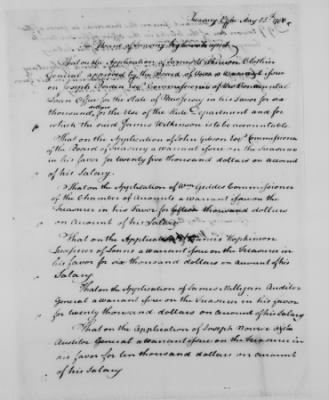 Treasury Office Aug 15th 1780
The Board of Treasury begs leave to report
That on the Application of James Wilkinson Clothier
General approved by the Board of War a Warrant issue
on Joseph Borden Esqr Commissioner of the Continental
Loan Office for the State of New Jersey in his favor for six
thousand dollars, for the Use of the Department and for
which the said James Wilkinson is to be accountable.
That on the Application of John Gibson Esqr Commissioner
of the Board of Treasury a warrant issue on the Treasurer
in his favor for twenty five thousand dollars on account
of his Salary.
That on the Application of Wm Geddes Commissioner
of the Chamber of Accounts a warrant issue on the
Treasurer in his favor for thousand dollars
on Account of his Salary.
That on the Application of Francis Hopkinson
Treasurer of Loans a warrant issue on the Treasurer in
his favor for six thousand dollars on account of his
Salary
That on the Application of James Milligan Auditor
General a warrant issue on the Treasurer in his favor
for twenty thousand dollars on account of his Salary
That on the Application of Joseph Nourse Assist
Auditor General a warrant issue on the Treasurer in
his favor for ten thousand dollars on account
of his Salary